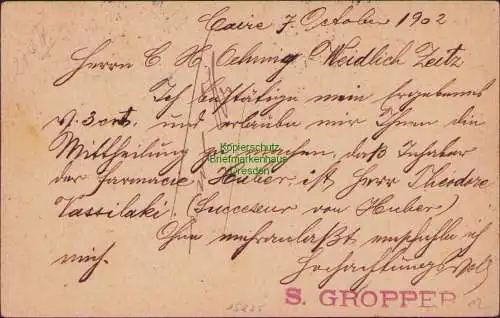 Caire 7 October 1902
Herrn C. H. Oehmig Weidlich Zeitz
Ich bestätige mein Ergebenes
v. 3 ort. und erlaube mir Ihnen die
Mittheilung zu machen, daß Inhaber
der Farmacie Huber ist Herr Theodore
Vassilaki. (Succeseur von Huber)
Ohne mehranlaßt empfehle ich
mich.
Hochachtungsvoll
S. GROPPER
Kopierschutz
Briefmarkenhaus
Dresden